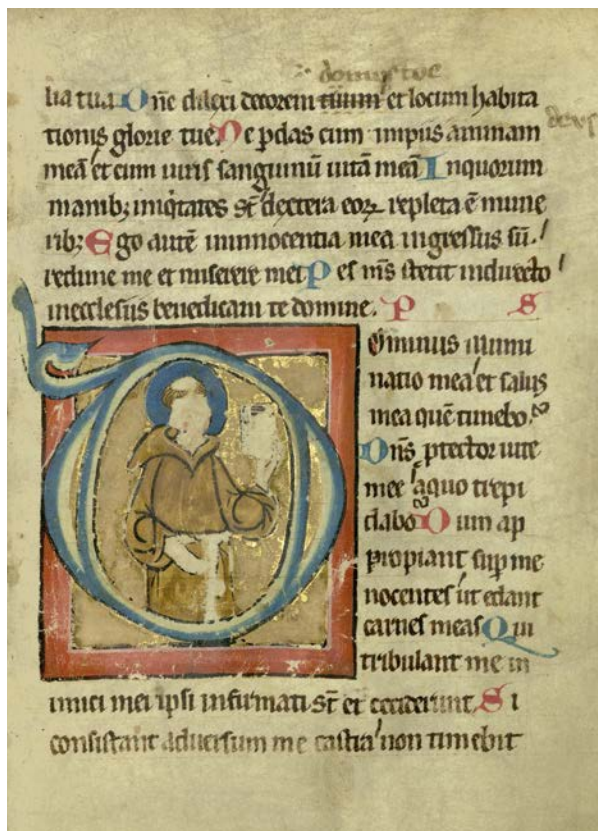 domus tue
lia tua Dñe dilexi decorem tuum et locum habita
tionis glorie tue. Ne pdas cum impiis animam
meā et cum uiris sanguinū uitā meā In quorum
manibꝫ iniqͥtates sē dextera eoꝝ repleta ē mune
ribꝫ Ego autē in innocentia mea ingressus sū.
redime me et miserere mei Pes mͤs stetit in directo
in ecclesiis benedicam te domine. P S
Ominus illumi
natio mea et salus
mea quē timebo.
Dns ꝓtector uite
mee a quo trepi
dabo Dum ap
propiant suꝑ me
nocentes ut edant
carnes meas Qui
tribulant me in
imici mei ipsi infirmati sт̄ et ceciderunt. Si
consistant aduersum me castra non timebit